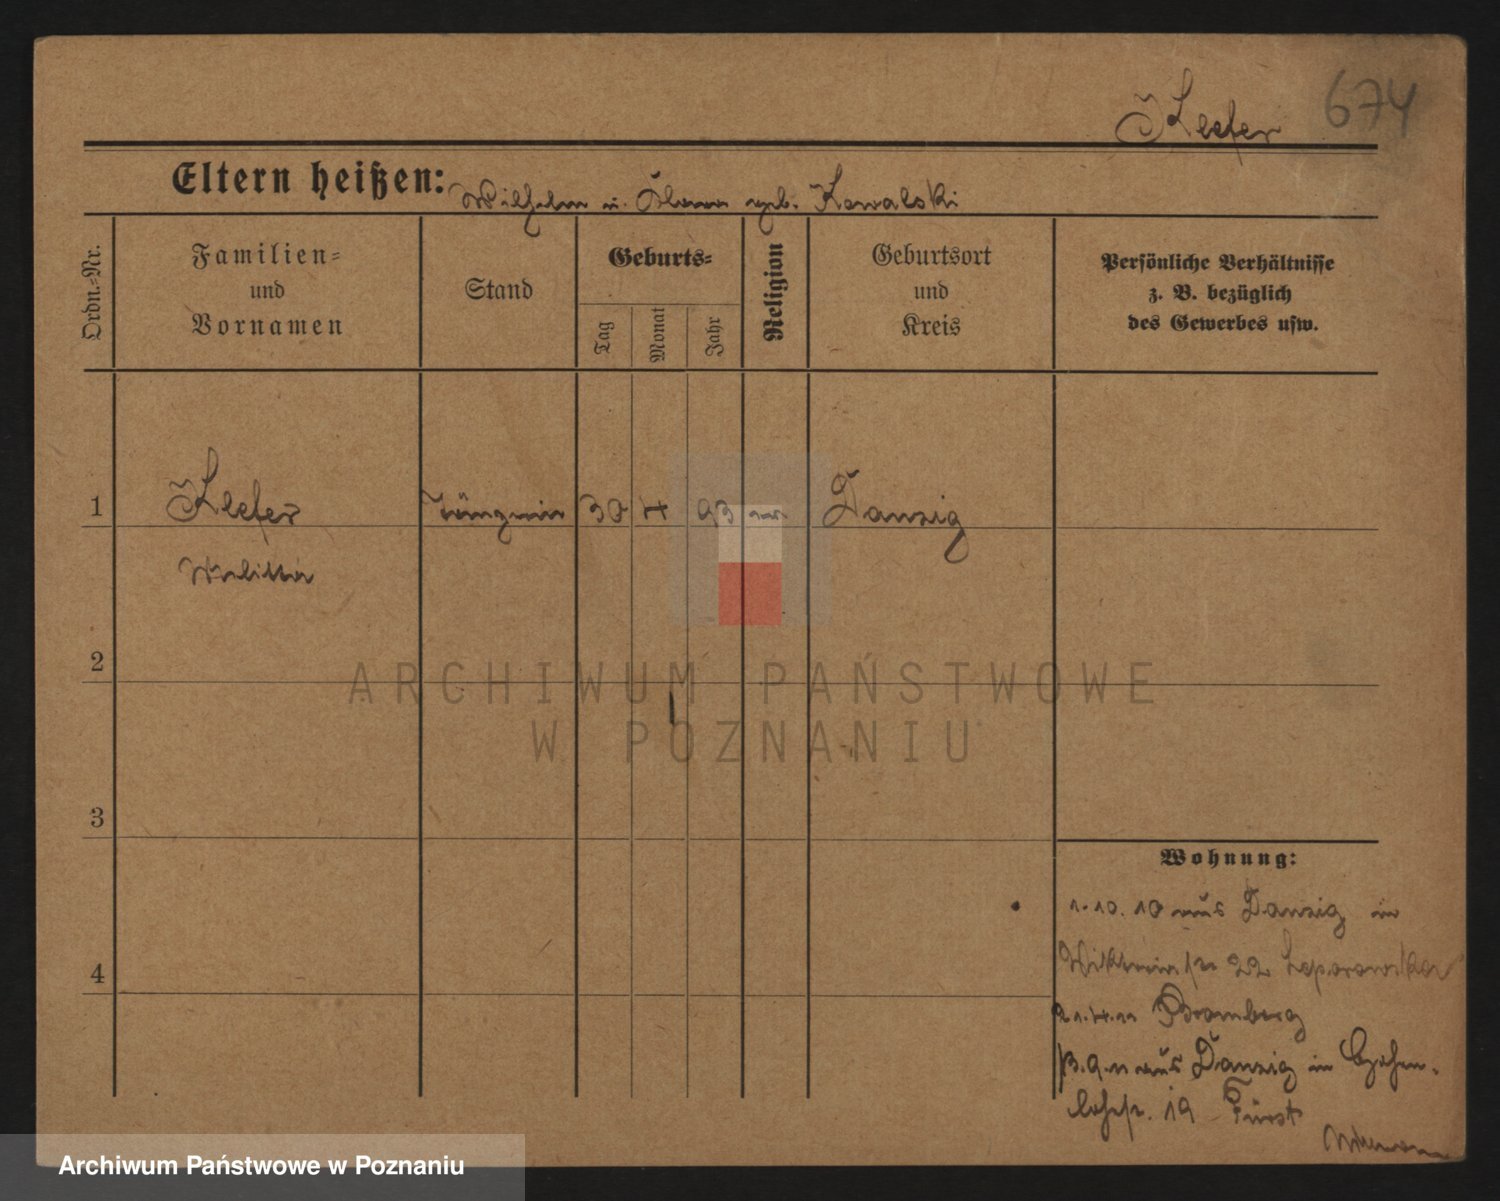 Kleefer 674
Eltern heißen: Wilhelm u. geb. Kowalski
Ordn.-Nr.
Familien-
und
Vornamen
Stand
Geburts-
Tag
Monat
Jahr
Religion
Geburtsort
und
Kreis
Persönliche Verhältnisse
z. B. bezüglich
des Gewerbes usw.
1 Kleefer 30 4 93 Danzig
2
3
4
Wohnung:
1.10.10 aus Danzig in
22
21.4.11 Bromberg
aus Danzig in
19 Fürst
ARCHIWUM PAŃSTWOWE
W POZNANIU
Archiwum Państwowe w Poznaniu